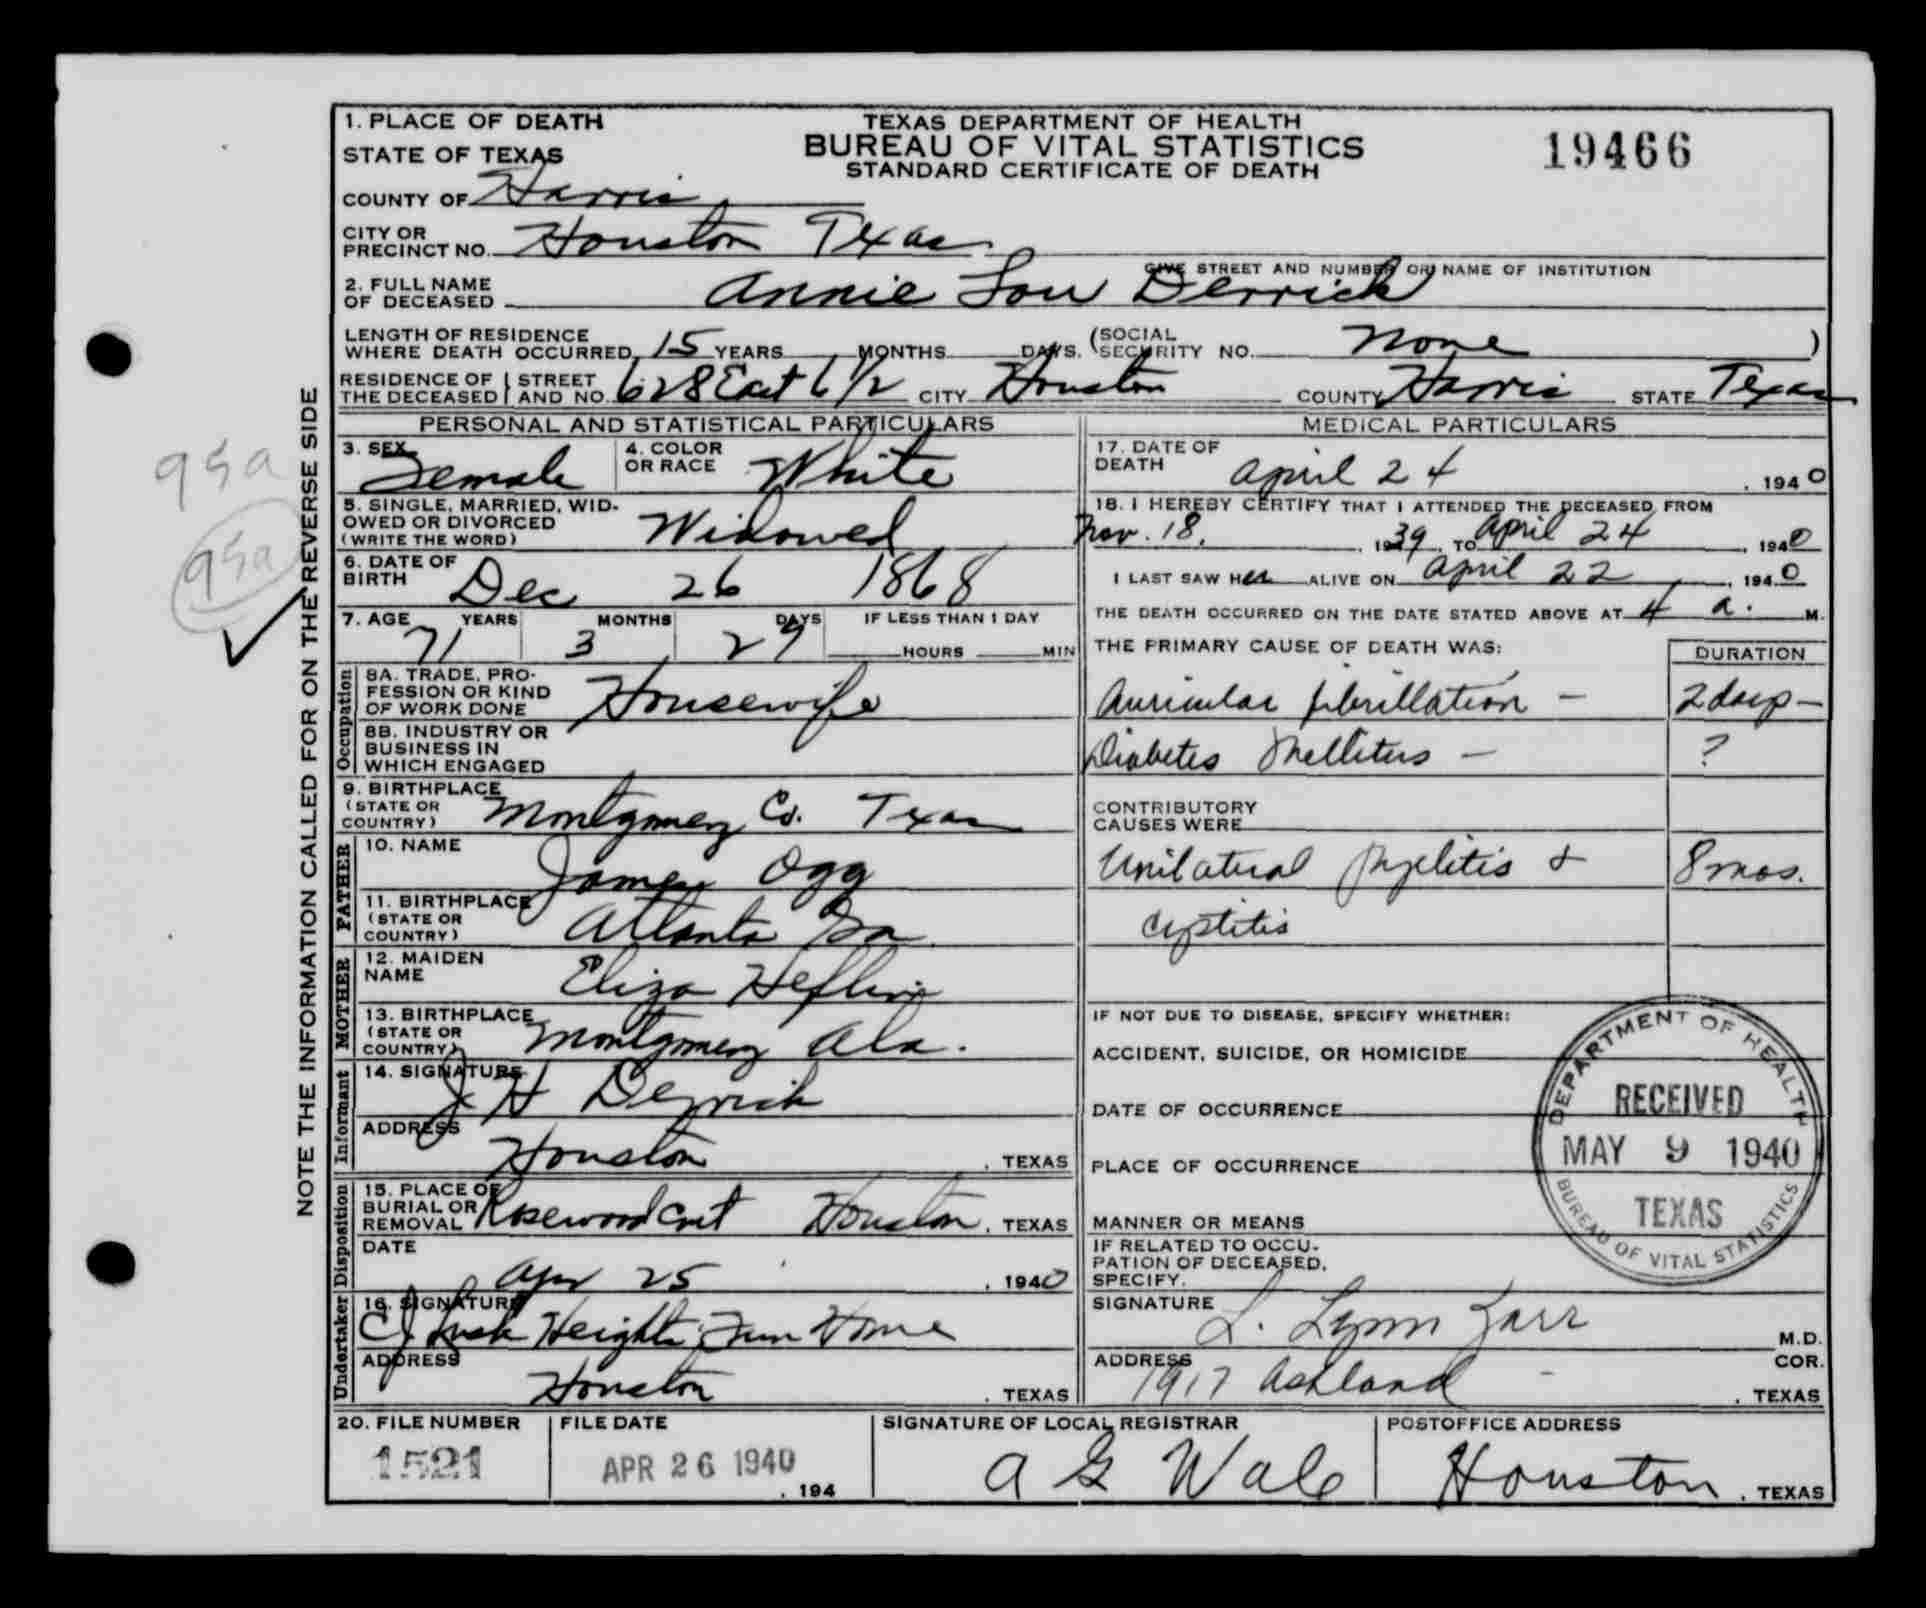 1. PLACE OF DEATH
TEXAS DEPARTMENT OF HEALTH
BUREAU OF VITAL STATISTICS
STANDARD CERTIFICATE OF DEATH
19466
STATE OF TEXAS
COUNTY OF Harris
CITY OR PRECINCT NO. Houston Texas
GIVE STREET AND NUMBER OR NAME OF INSTITUTION
2. FULL NAME OF DECEASED Annie Lou Derrick
LENGTH OF RESIDENCE WHERE DEATH OCCURRED 15 YEARS MONTHS DAYS. (SOCIAL SECURITY NO. None )
RESIDENCE OF THE DECEASED STREET AND NO. 628 East 6 1/2 CITY Houston COUNTY Harris STATE Texas
NOTE THE INFORMATION CALLED FOR ON THE REVERSE SIDE
95a
95a
PERSONAL AND STATISTICAL PARTICULARS
3. SEX Female
4. COLOR OR RACE White
5. SINGLE, MARRIED, WIDOWED OR DIVORCED (WRITE THE WORD) Widowed
6. DATE OF BIRTH Dec 26 1868
7. AGE YEARS MONTHS DAYS IF LESS THAN 1 DAY
71 3 29 HOURS MIN
Occupation
8A. TRADE, PROFESSION OR KIND OF WORK DONE Housewife
8B. INDUSTRY OR BUSINESS IN WHICH ENGAGED
9. BIRTHPLACE (STATE OR COUNTRY) Montgomery Co. Texas
FATHER
10. NAME James Ogg
11. BIRTHPLACE (STATE OR COUNTRY) Atlanta Ga
MOTHER
12. MAIDEN NAME Eliza Heflin
13. BIRTHPLACE (STATE OR COUNTRY) Montgomery Ala.
Informant
14. SIGNATURE J H Derrick
ADDRESS Houston, TEXAS
Disposition
15. PLACE OF BURIAL OR REMOVAL Rosewood Cmt Houston, TEXAS
DATE Apr 25, 1940
Undertaker
16. SIGNATURE CJ Lusk Heights Fun Home
ADDRESS Houston, TEXAS
MEDICAL PARTICULARS
17. DATE OF DEATH April 24, 1940
18. I HEREBY CERTIFY THAT I ATTENDED THE DECEASED FROM
Nov. 18, 1939 TO April 24, 1940
I LAST SAW Her ALIVE ON April 22, 1940
THE DEATH OCCURRED ON THE DATE STATED ABOVE AT 4 a. M.
THE PRIMARY CAUSE OF DEATH WAS: DURATION
Auricular fibrillation – 2 days –
Diabetes Mellitus – ?
CONTRIBUTORY CAUSES WERE
Unilateral pyelitis & 8 mos.
cystitis
IF NOT DUE TO DISEASE, SPECIFY WHETHER:
ACCIDENT, SUICIDE, OR HOMICIDE
DATE OF OCCURRENCE
PLACE OF OCCURRENCE
MANNER OR MEANS
IF RELATED TO OCCUPATION OF DECEASED, SPECIFY.
DEPARTMENT OF HEALTH
RECEIVED
MAY 9 1940
TEXAS
BUREAU OF VITAL STATISTICS
SIGNATURE L. Lynn Zarr M.D.
COR.
ADDRESS 1917 Ashland, TEXAS
20. FILE NUMBER 1521
FILE DATE APR 26 1940, 194
SIGNATURE OF LOCAL REGISTRAR A G Wale
POSTOFFICE ADDRESS Houston, TEXAS